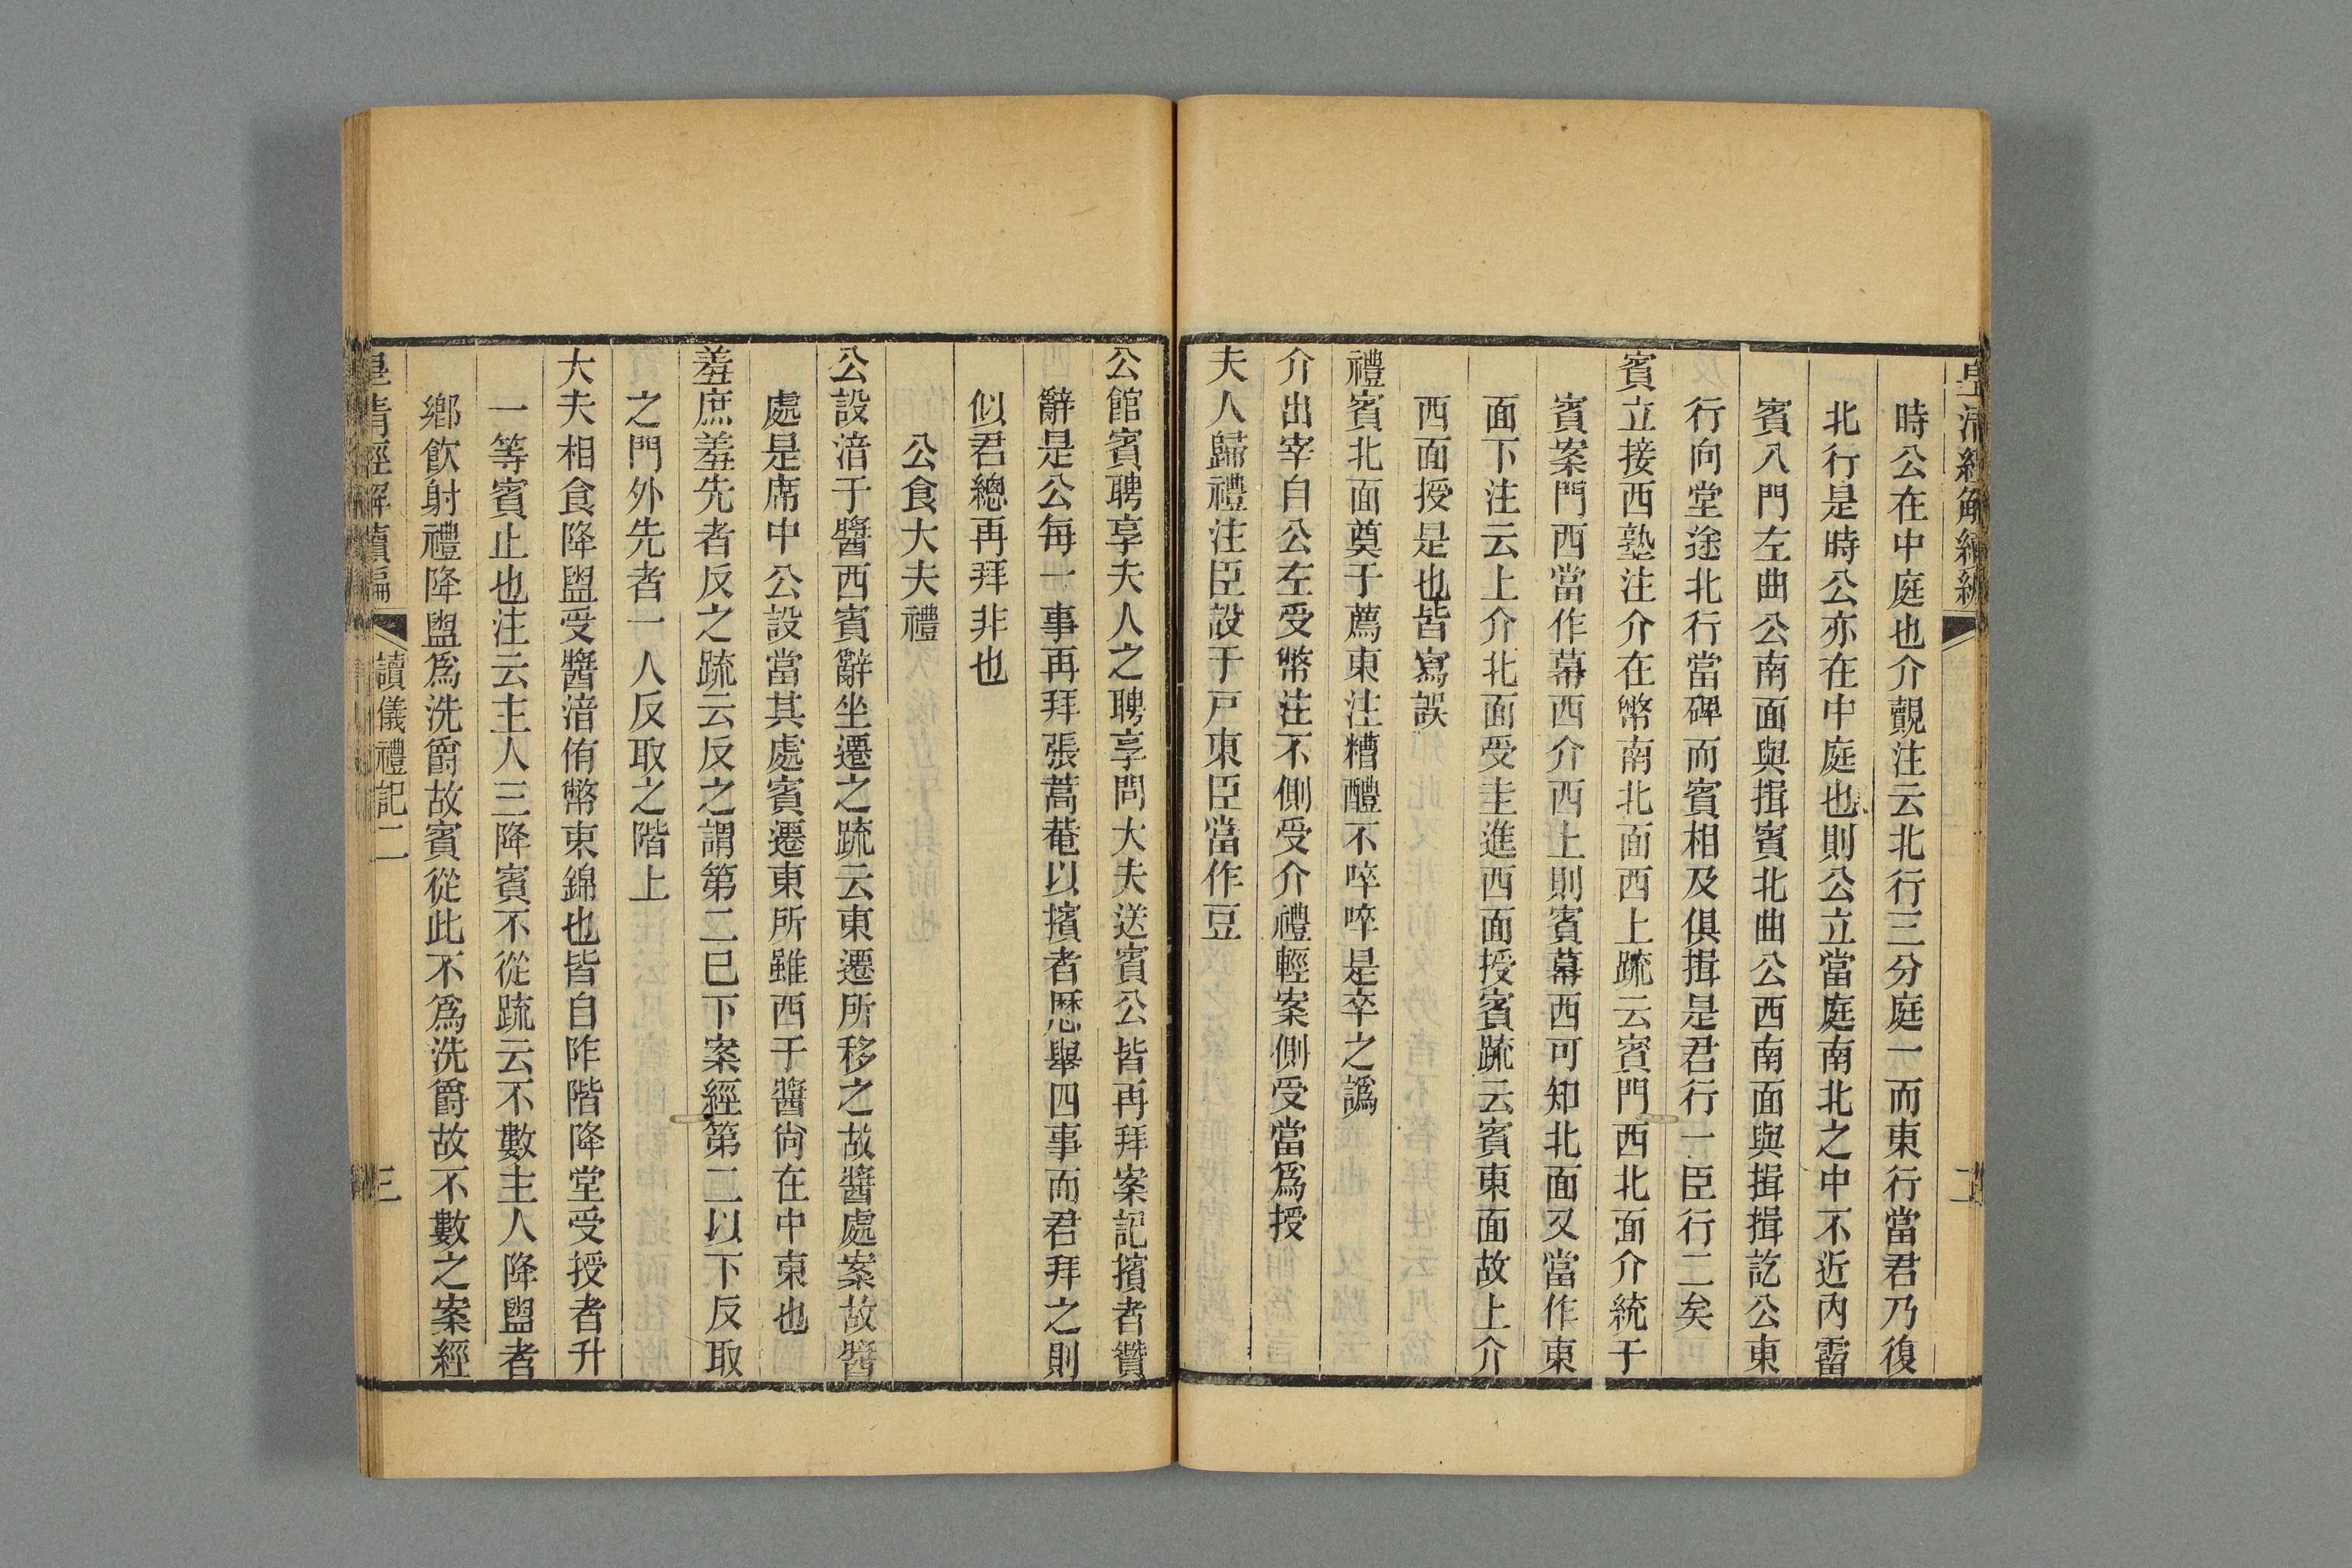 皇清經解續編
二
時公在中庭也介覿注云北行三分庭一而東行當君乃復
北行是時公亦在中庭也則公立當庭南北之中不近內霤
賓入門左曲公南面與揖賓北曲公西南面與揖揖訖公東
行向堂途北行當碑而賓相及俱揖是君行一臣行二矣
賓立接西塾注介在幣南北面西上疏云賓門西北面介統于
賓案門西當作幕西介西上則賓幕西可知北面又當作東
面下注云上介北面受圭進西面授賓疏云賓東面故上介
西面授是也皆寫誤
禮賓北面奠于薦東注糟醴不啐啐是卒之譌
介出宰自公左受幣注不側受介禮輕案側受當爲授
夫人歸禮注臣設于戸東臣當作豆
公館賓聘享夫人之聘享問大夫送賓公皆再拜案記擯者贊
辭是公每一事再拜張蒿菴以擯者歷舉四事而君拜之則
似君總再拜非也
公食大夫禮
公設湆于醬西賓辭坐遷之疏云東遷所移之故醬處案故醬
處是席中公設當其處賓遷東所雖西于醬尙在中東也
羞庶羞先者反之疏云反之謂第二已下案經第二以下反取
之門外先者一人反取之階上
大夫相食降盥受醬湆侑幣束錦也皆自阼階降堂受授者升
一等賓止也注云主人三降賓不從疏云不數主人降盥者
鄉飲射禮降盥爲洗爵故賓從此不爲洗爵故不數之案經
皇清經解續編
讀儀禮記二
三